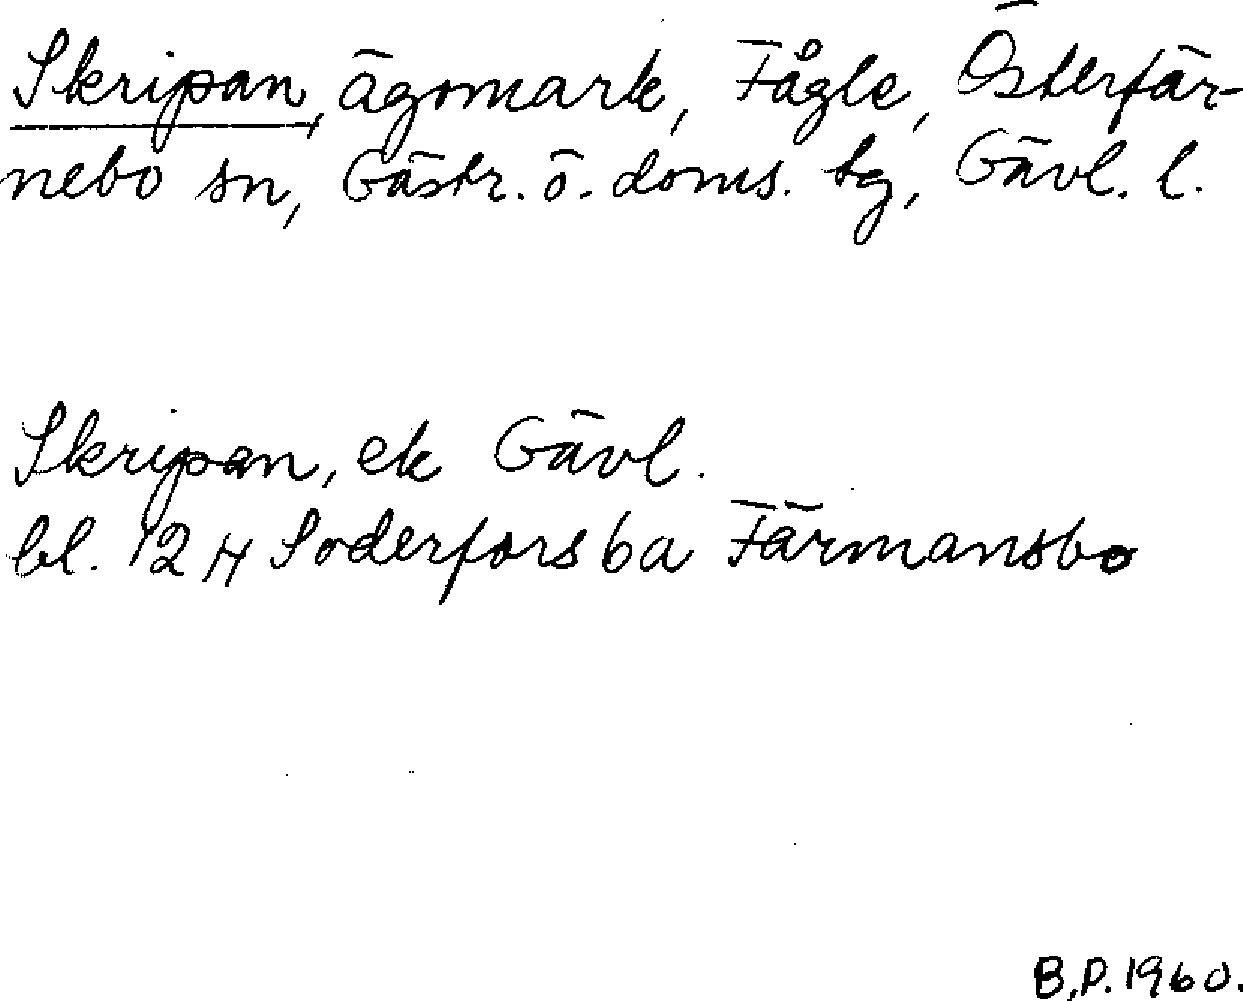 Skripan, ägomark, Fågle, Österfär-
nebo sn, Gästr. ö. doms. tg, Gävl. l.
Skripan, ek Gävl.
bl. 12 H Soderfors 6a Färmansbo
B.P. 1960.